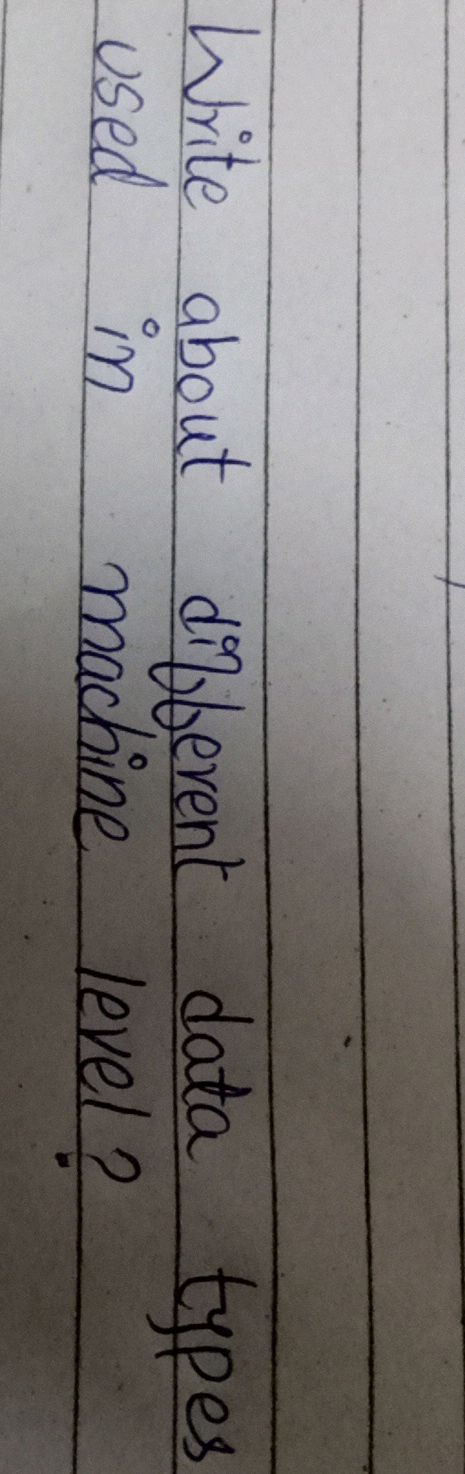 Write about different data types
used in machine level?